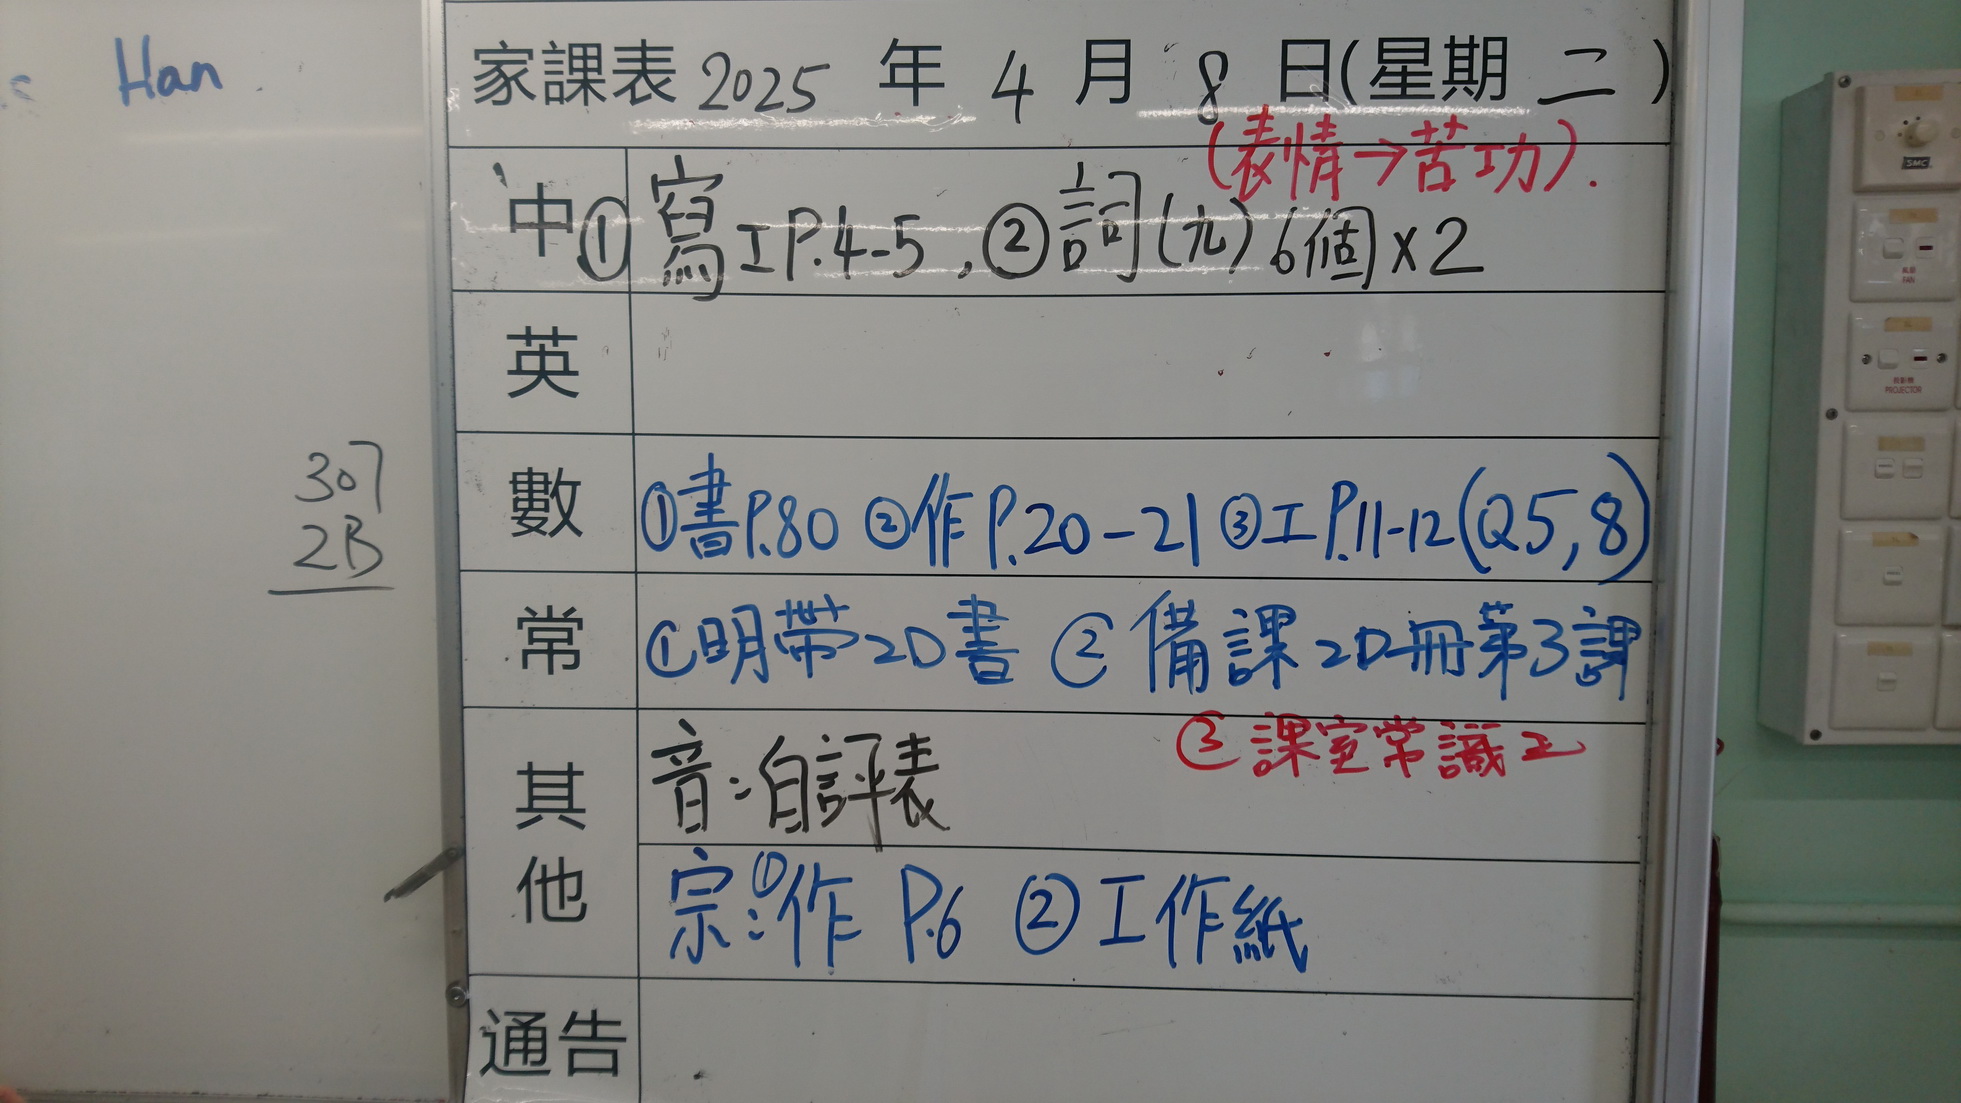 Han
家課表 2025 年 4 月 8 日(星期 二)
(表情→苦功).
中 ① 寫工P.4-5, ②詞(九) 6個×2
英
數 ①書P.80 ②作P.20-21 ③工P.11-12(Q5,8)
307
2B
常 ①明帶2D書 ②備課2D冊第3課
③課室常識工
其他
音:自評表
宗:①作 P.6 ②工作紙
通告
SMC
風扇
FAN
投影機
PROJECTOR